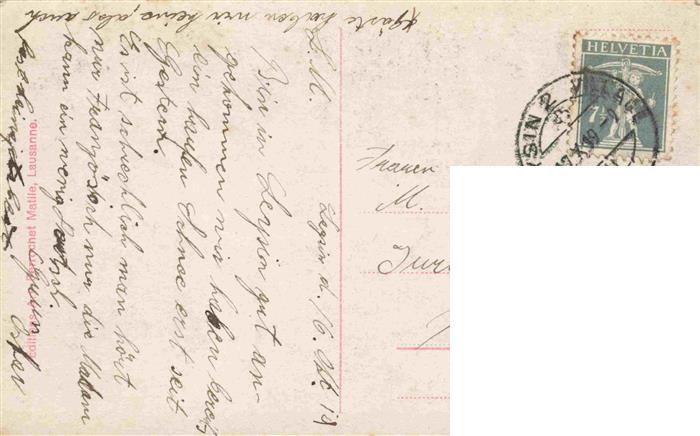 Leysin d. 16. Okt. 19
L. M.
Bin in Leysin gut an-
gekommen wir haben bereits
ein haufen Schnee erst seit
Gestern.
Es ist schrecklich man hört
nur Französisch nur die Madam
kann ein wenig
Oskar
Gäste haben wir keine, also auch
Frauen
M.
HELVETIA
7½
SIN 2 VILLAGE
Perrochet Matile, Lausanne.